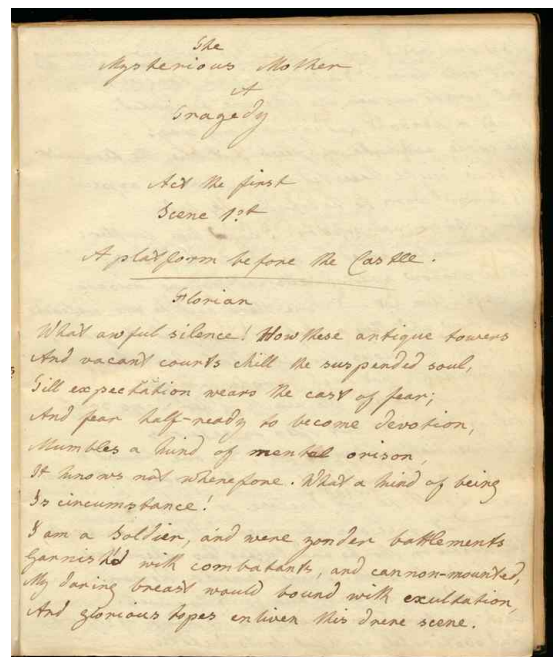 The
Mysterious Mother
A
Tragedy
Act the first
Scene 1st
A platform before the Castle.
Florian
What awful silence! How these antique towers
And vacant courts chill the suspended soul,
Till expectation wears the cast of fear;
And fear half-ready to become devotion,
Mumbles a kind of mental orison,
It knows not wherefore. What a kind of being
Is circumstance!
I am a Soldier, and were yonder battlements
Garnish'd with combatants, and cannon-mounted,
My daring breast would bound with exultation,
And glorious hopes enliven this drere scene.